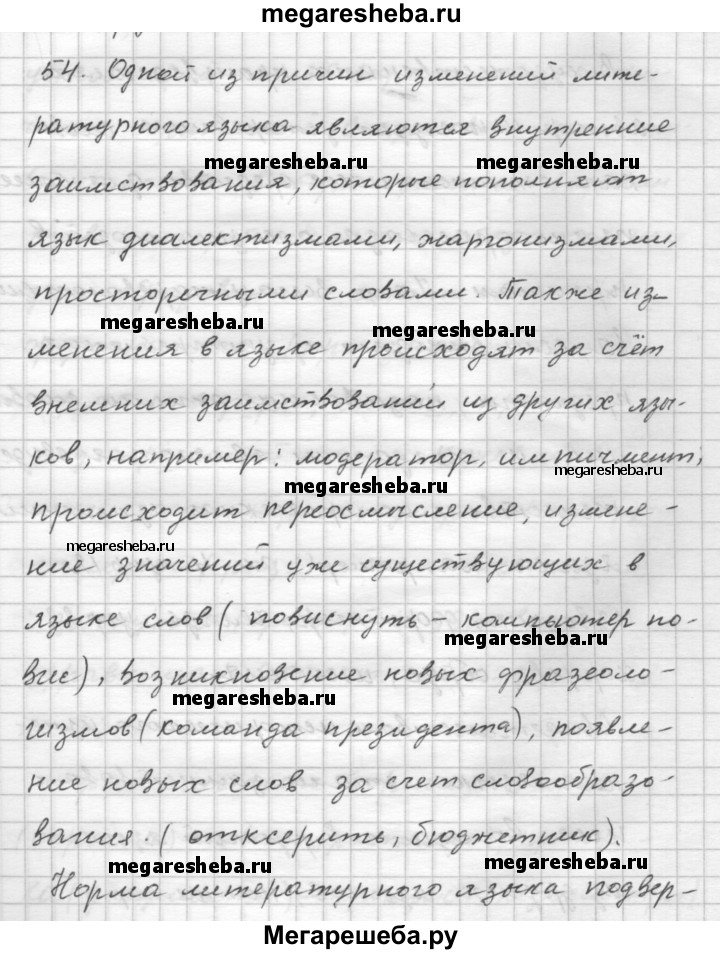 megaresheba.ru
54. Одной из причин изменений лите-
ратурного языка являются внутренние
megaresheba.ru megaresheba.ru
заимствования, которые пополняют
язык диалектизмами, жаргонизмами,
просторечными словами. Также из-
megaresheba.ru megaresheba.ru
менения в языке происходят за счёт
внешних заимствований из других язы-
ков, например: модератор, импичмент;
megaresheba.ru megaresheba.ru
происходит переосмысление, измене-
megaresheba.ru
ние значений уже существующих в
языке слов ( повиснуть – компьютер по-
megaresheba.ru
вис), возникновение новых фразеоло-
megaresheba.ru
гизмов (команда президента), появле-
ние новых слов за счет словообразо-
вания. ( отксерить, бюджетник).
megaresheba.ru megaresheba.ru
Норма литературного языка подвер-
Мегарешеба.ру